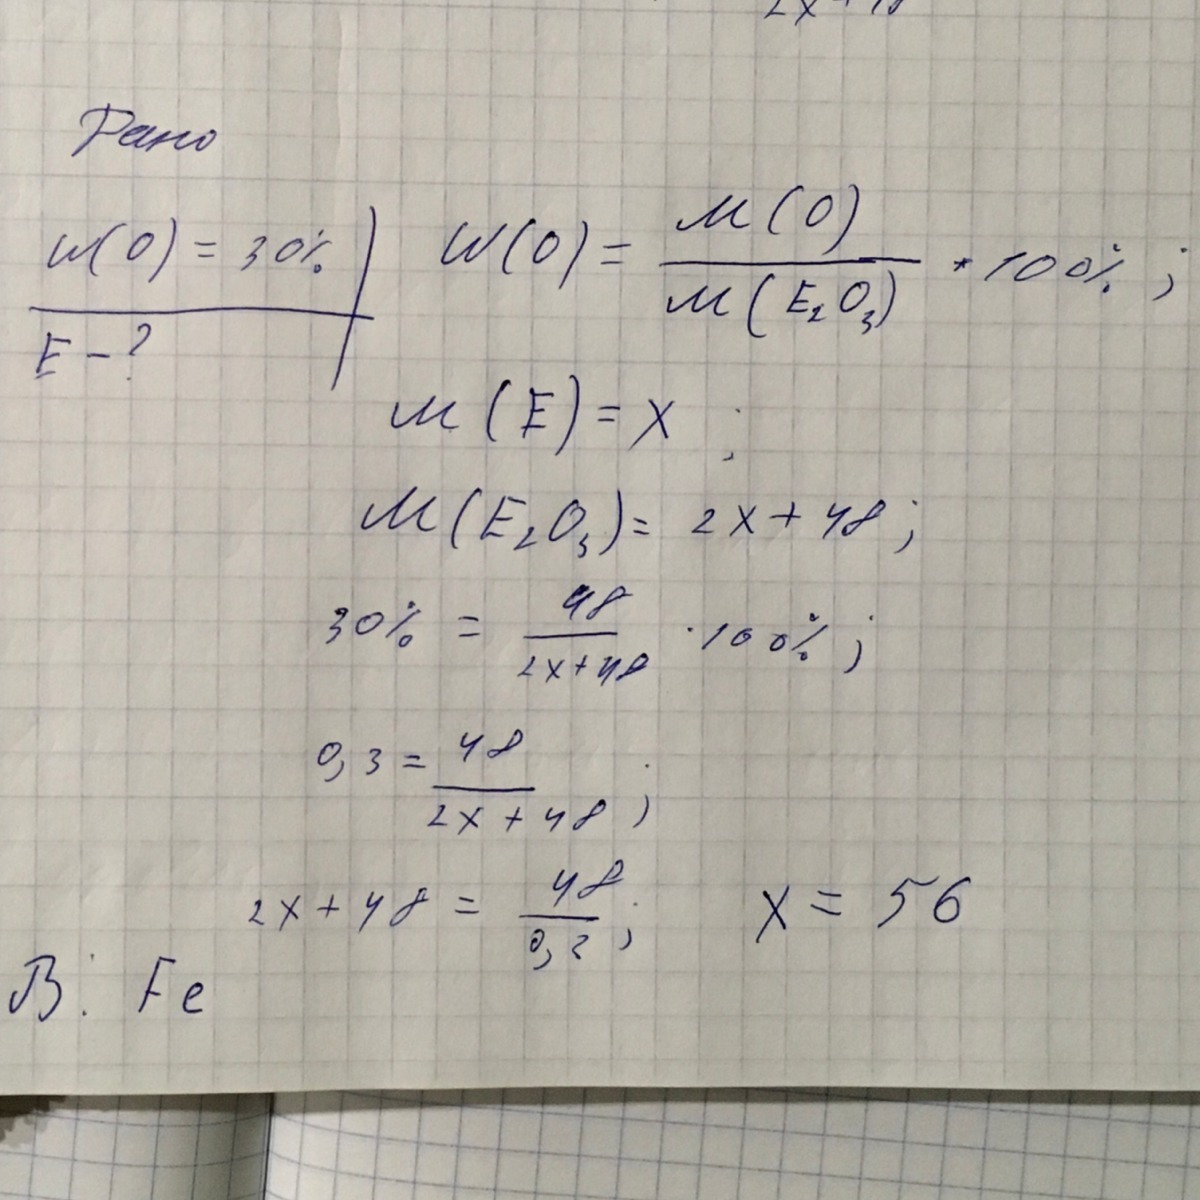 2x+48
Рано
W(O) = 30%
E - ?
W(O) = M(O) / M(E₂O₃) * 100% ;
M(E) = X ;
M(E₂O₃) = 2x + 48 ;
30% = 48 / 2x+48 · 100% ;
0,3 = 48 / 2x + 48 ;
2x + 48 = 48 / 0,2 ; X = 56
В: Fe